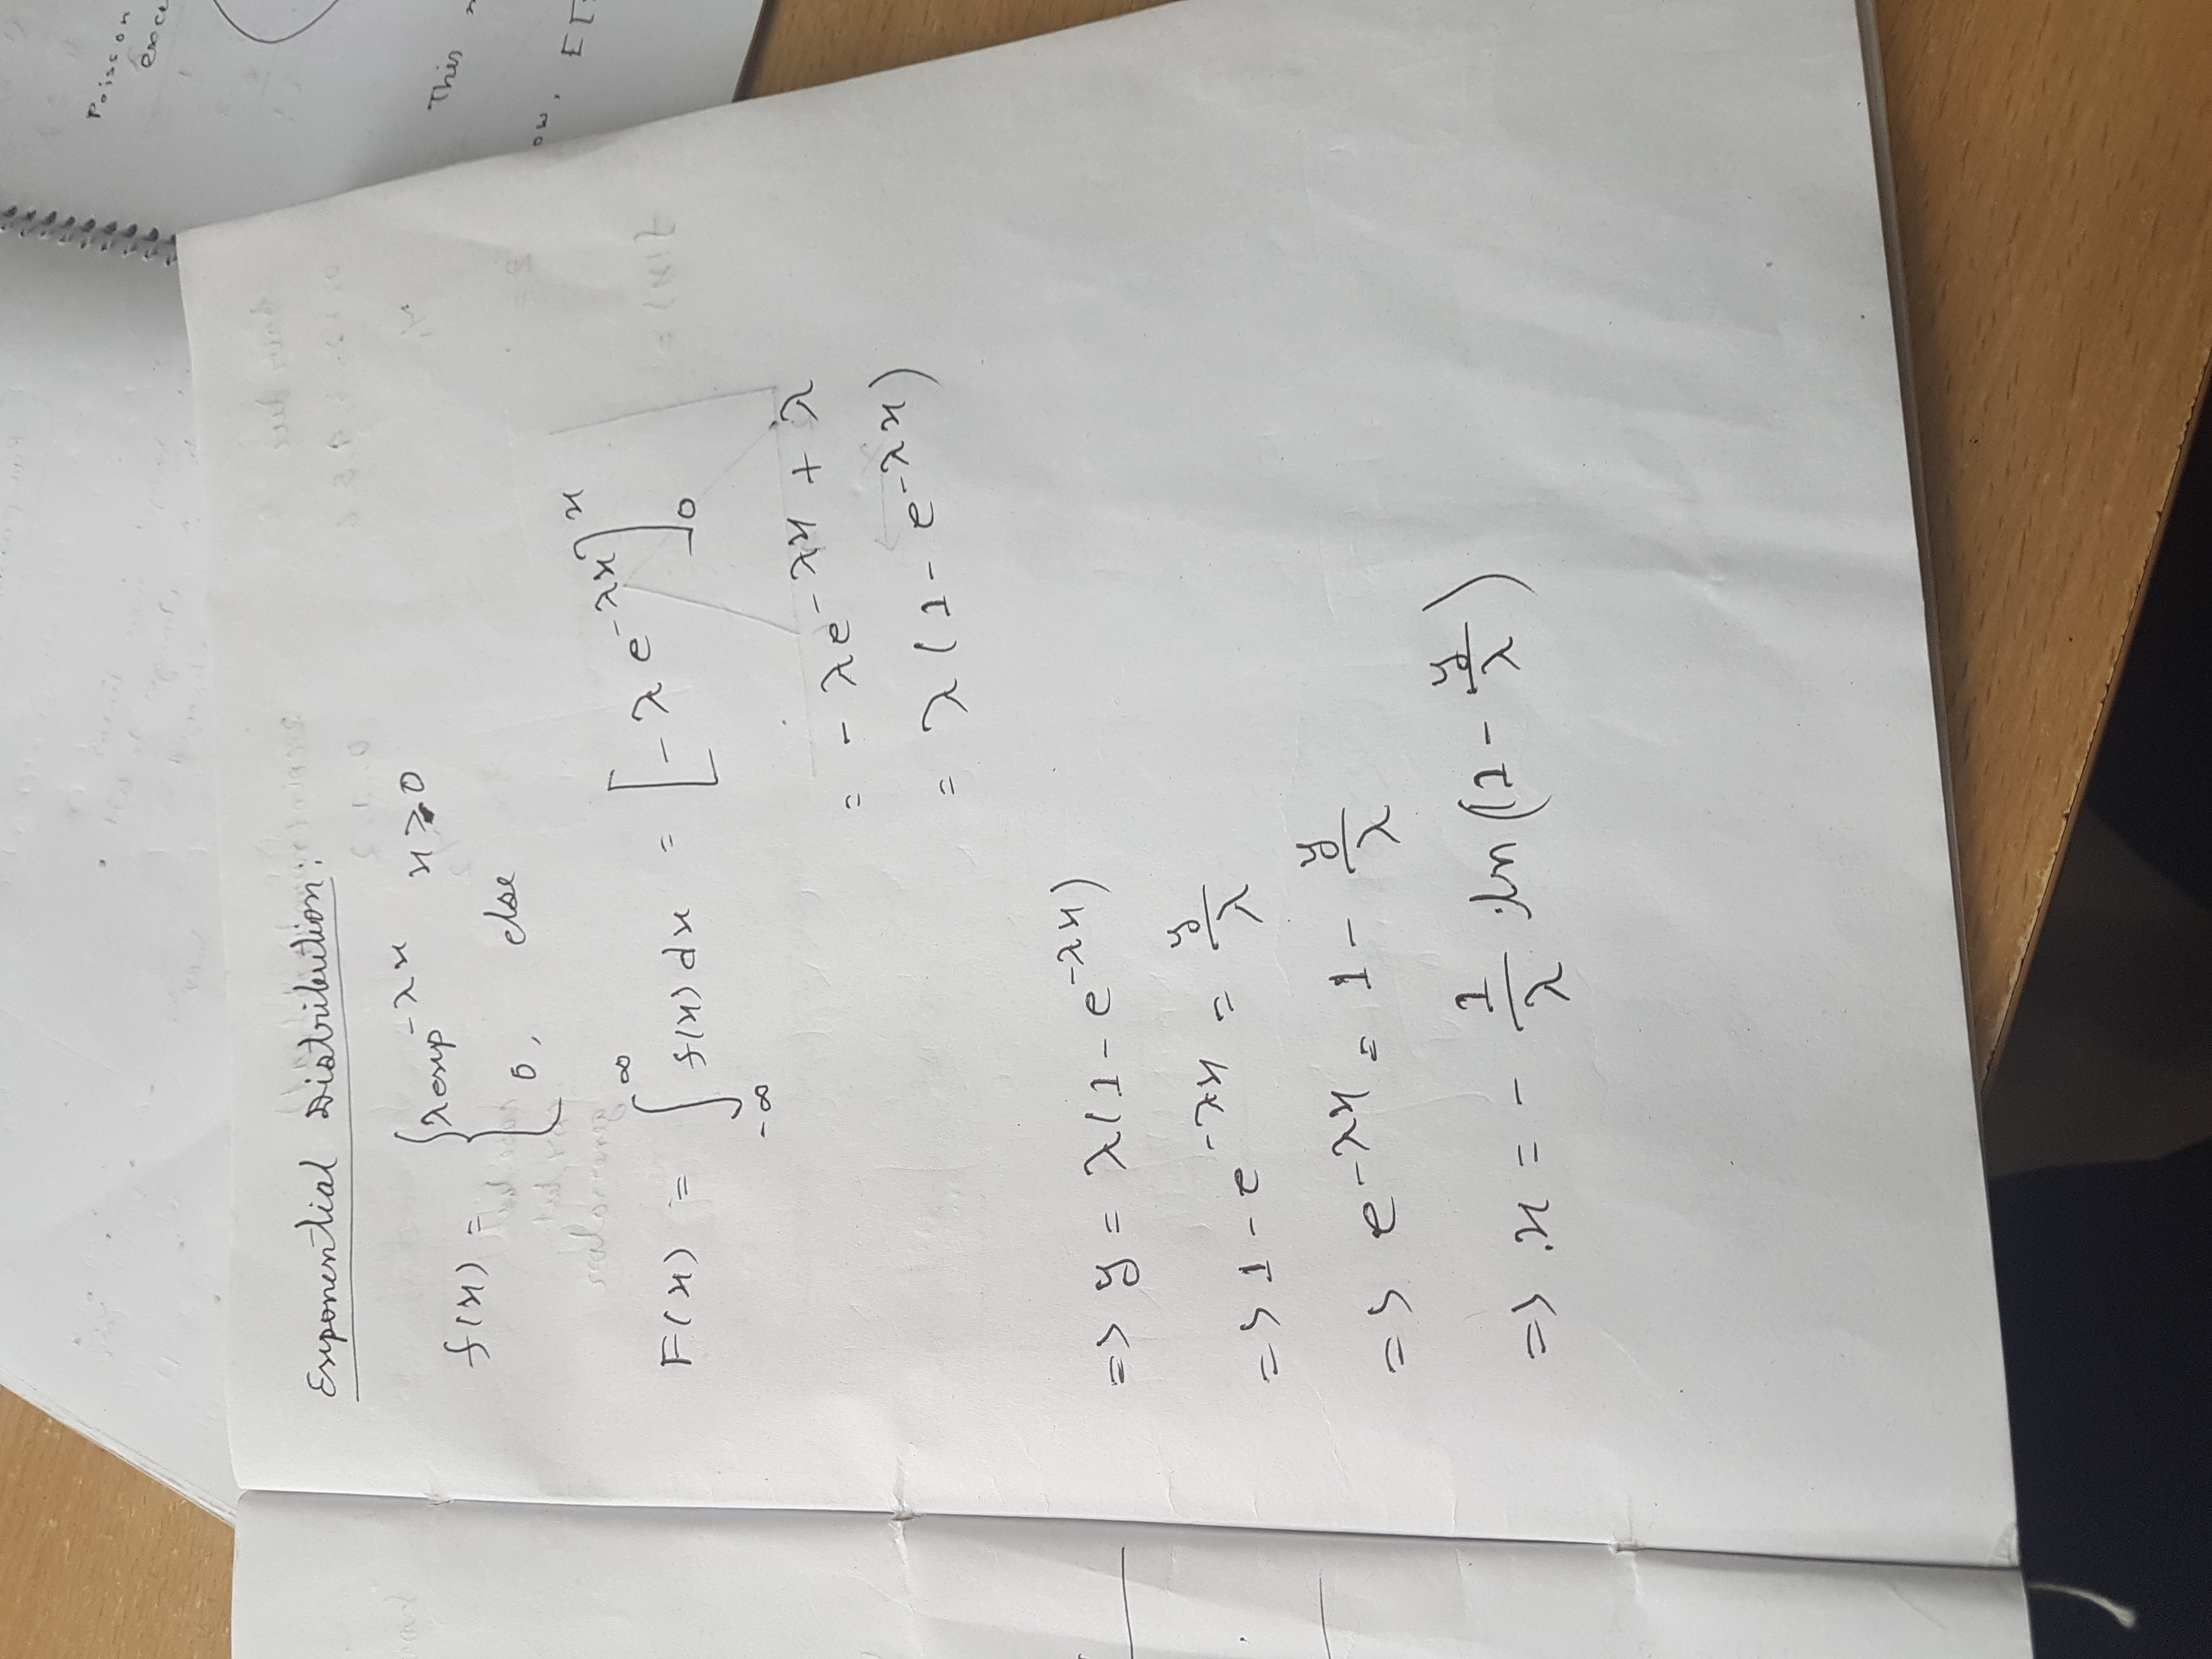 Exponential Distribution:
f(x) = { λ exp^{-λx} x ≥ 0
0, else
F(x) = ∫_{-∞}^{∞} f(x) dx = [-λ e^{-λx}]_0^x
= -λe^{-λx} + λ
= λ(1 - e^{-λx})
=> y = λ(1 - e^{-λx})
=> 1 - e^{-λx} = y/λ
=> e^{-λx} = 1 - y/λ
=> x = - 1/λ ln(1 - y/λ)
Poisson
This
ow, E[